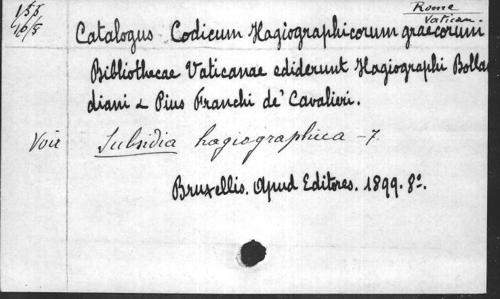 Rome
Vatican.
Catalogus Codicum Hagiographicorum graecorum
Bibliothecae Vaticanae ediderunt Hagiographi Bollan
diani & Pius Franchi de' Cavalieri.
Voir Subsidia hagiographica - 7
Bruxellis. Apud Editores. 1899. 8º.